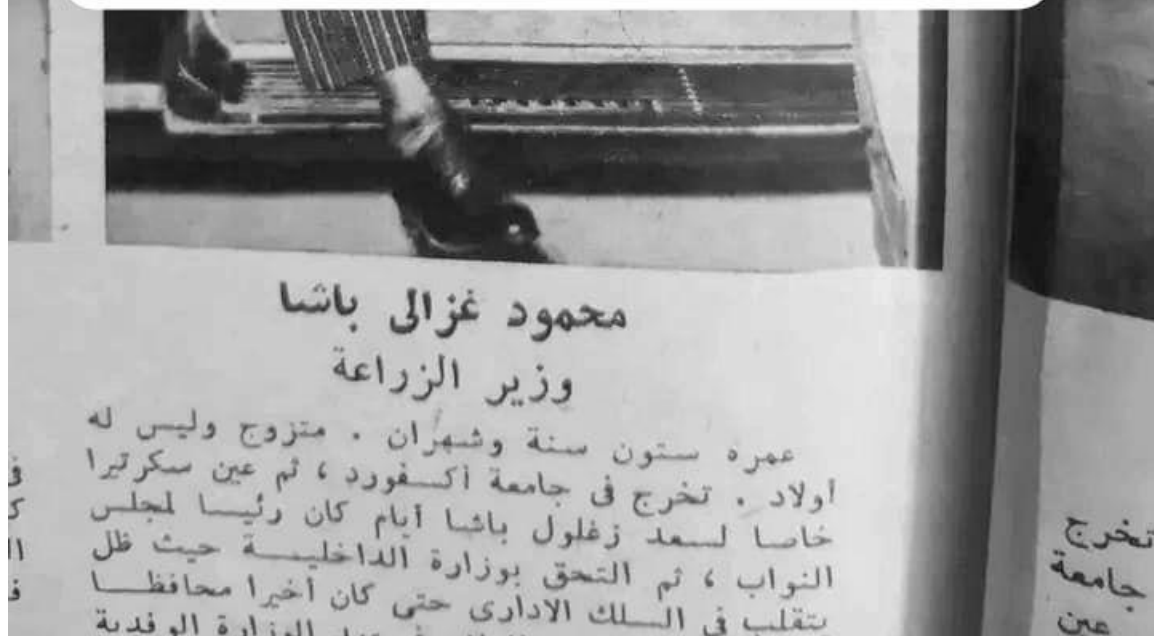 محمود غزالى باشا
وزير الزراعة
عمره ستون سنة وشهران . متزوج وليس له
أولاد . تخرج فى جامعة أكسفورد ، ثم عين سكرتيرا
خاصا لسعد زغلول باشا أيام كان رئيسا لمجلس
النواب ، ثم التحق بوزارة الداخلية حيث ظل
يتقلب فى السلك الادارى حتى كان أخيرا محافظا
الوزارة الوفدية
تخرج
جامعة
عين